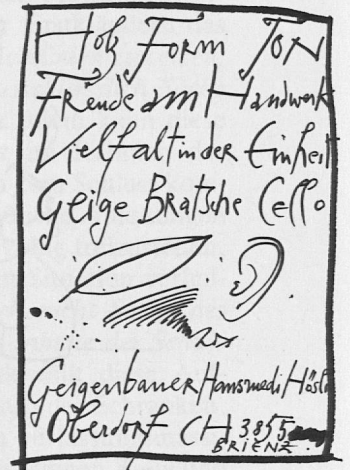 Holz Form TON
Freude am Handwerk
Vielfalt in der Einheit
Geige Bratsche Cello
Geigenbauer Hansruedi Hösli
Oberdorf CH 3855
BRIENZ